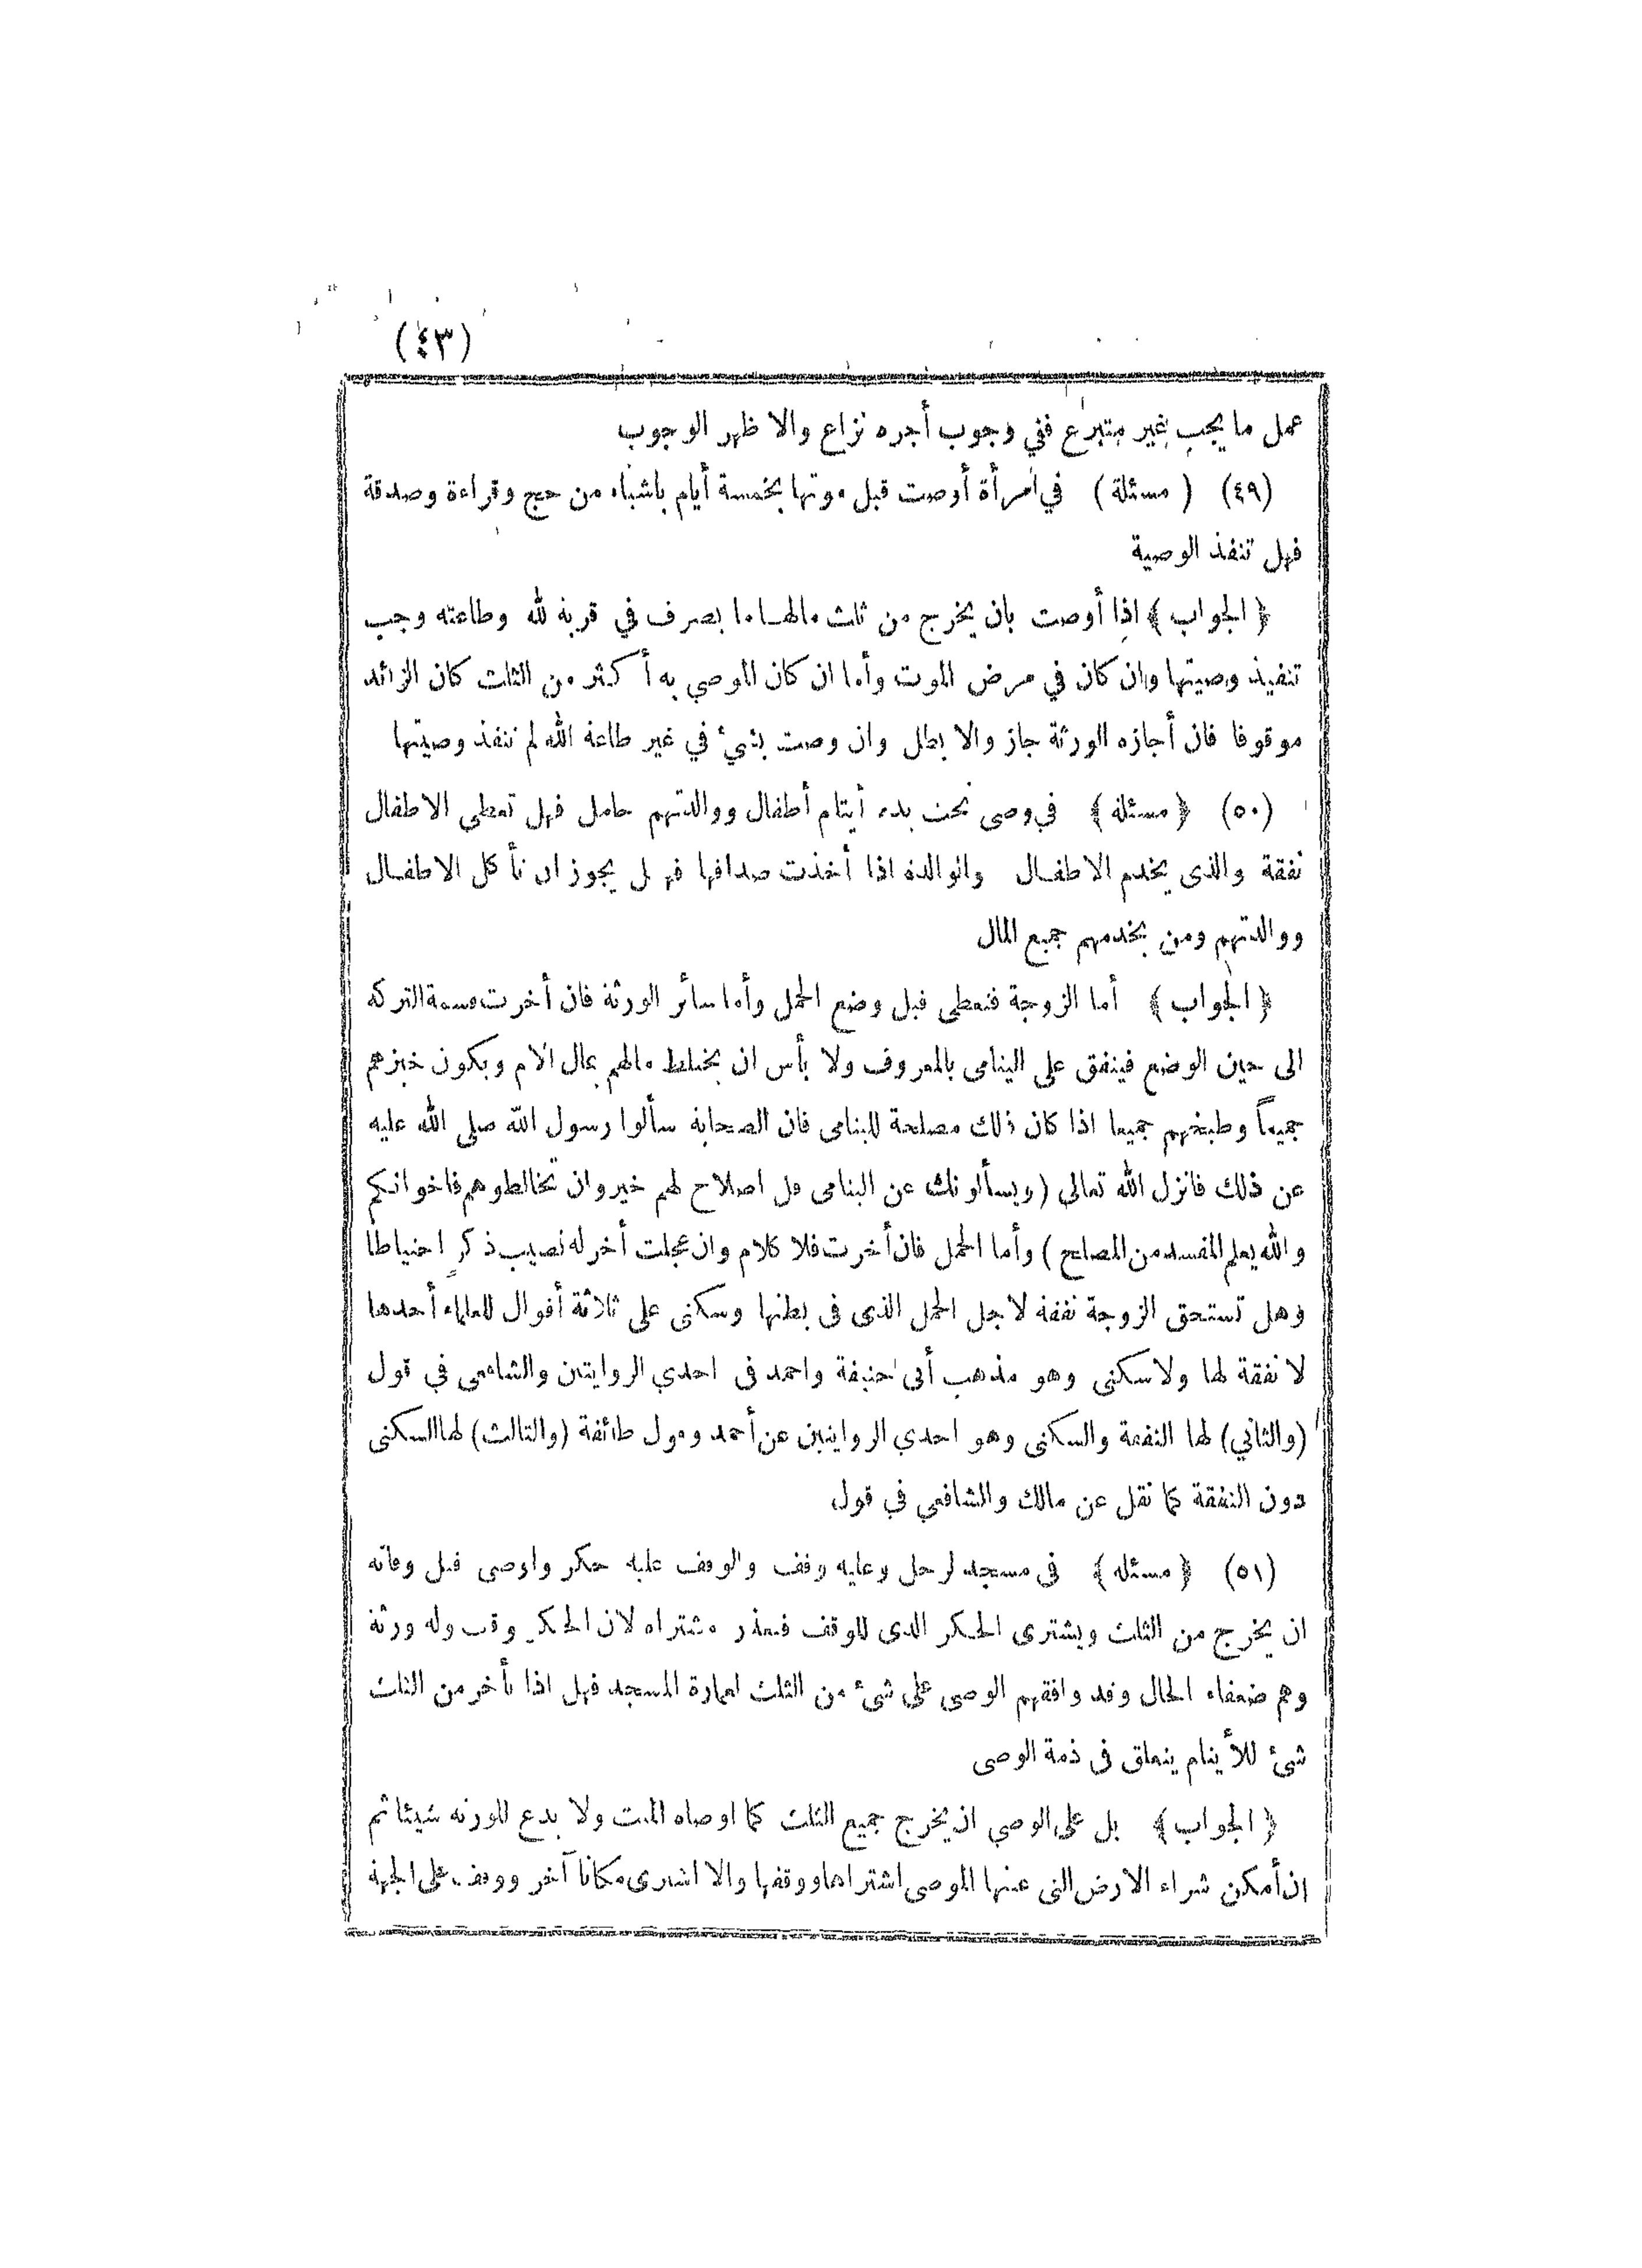 (٤٣)
عمل ما يجب غير متبرع ففي وجوب أجره نزاع والاظهر الوجوب
(٤٩) (مسئلة) في امرأة أوصت قبل موتها بخمسة أيام باشياء من حج وقراءة وصدقة
فهل تنفذ الوصية
﴿الجواب﴾ اذا أوصت بان يخرج من ثلث مالها ما يصرف في قربة لله وطاعته وجب
تنفيذ وصيتها وان كان في مرض الموت وأما ان كان الموصي به أكثر من الثلث كان الزائد
موقوفا فان أجازه الورثة جاز والا بطل وان وصت بشيء في غير طاعة الله لم تنفذ وصيتها
(٥٠) ﴿مسئلة﴾ في وصى تحت يده أيتام أطفال ووالدتهم حامل فهل تعطى الاطفال
نفقة والذى يخدم الاطفال والوالدة اذا أخذت صداقها فهل يجوز ان تأكل الاطفال
ووالدتهم ومن يخدمهم جميع المال
﴿الجواب﴾ أما الزوجة فتعطى قبل وضع الحمل وأما سائر الورثة فان أخرت قسمة التركة
الى حين الوضع فينفق على اليتامى بالمعروف ولا بأس ان يختلط مالهم بمال الام ويكون خبزهم
جميعاً وطبخهم جميعا اذا كان ذلك مصلحة لليتامى فان الصحابة سألوا رسول الله صلى الله عليه
عن ذلك فانزل الله تعالى (ويسألونك عن اليتامى قل اصلاح لهم خير وان تخالطوهم فاخوانكم
والله يعلم المفسد من المصلح) وأما الحمل فان أخرت فلا كلام وان عجلت أخر له نصيب ذكر احتياطا
وهل تستحق الزوجة نفقة لاجل الحمل الذى فى بطنها وسكنى على ثلاثة أقوال للعلماء أحدها
لا نفقة لها ولا سكنى وهو مذهب أبى حنيفة واحمد فى احدي الروايتين والشافعى في قول
(والثاني) لها النفقة والسكنى وهو احدي الروايتين عن أحمد وقول طائفة (والثالث) لها السكنى
دون النفقة كما نقل عن مالك والشافعي في قول
(٥١) ﴿مسئله﴾ فى مسجد لرجل وعليه وقف والوقف عليه حكر واوصى قبل وفاته
ان يخرج من الثلث ويشترى الحكر الذى للوقف فتعذر مشتراه لان الحكر وقف وله ورثة
وهم ضعفاء الحال وقد وافقهم الوصى على شئ من الثلث لعمارة المسجد فهل اذا تأخر من الثلث
شئ للأيتام يتعلق فى ذمة الوصى
﴿الجواب﴾ بل على الوصي ان يخرج جميع الثلث كما اوصاه الميت ولا يدع للورثة شيئا ثم
ان أمكن شراء الارض التى عينها الموصى اشتراها ووقفها والا اشترى مكانا آخر ووقف على الجهة